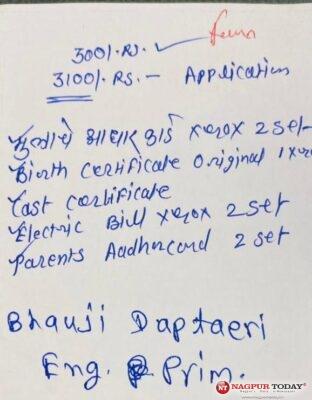 300/-RS.
3100/-RS.- Application
मुलाचे आधार कार्ड xerox 2 set-
Birth certificate original 1 xer
Cast certificate
Electric Bill xerox 2 set
Parents Aadharcard 2 set
Bhauji Daptaeri
Eng. Prim.
NT NAGPUR TODAY